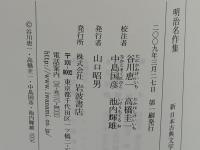 新日本古典文学
明治名作集
二〇〇九年三月二七日 第一刷発行
校注者
谷川恵一 高橋圭一
中島国彦 池内輝雄
発行者 山口昭男
発行所 株式会社 岩波書店
東京都千代田区一ツ橋二
電話案内
http://www.iwanami.co.jp/
© 谷川恵一・高橋圭一・中島国彦・池内輝雄